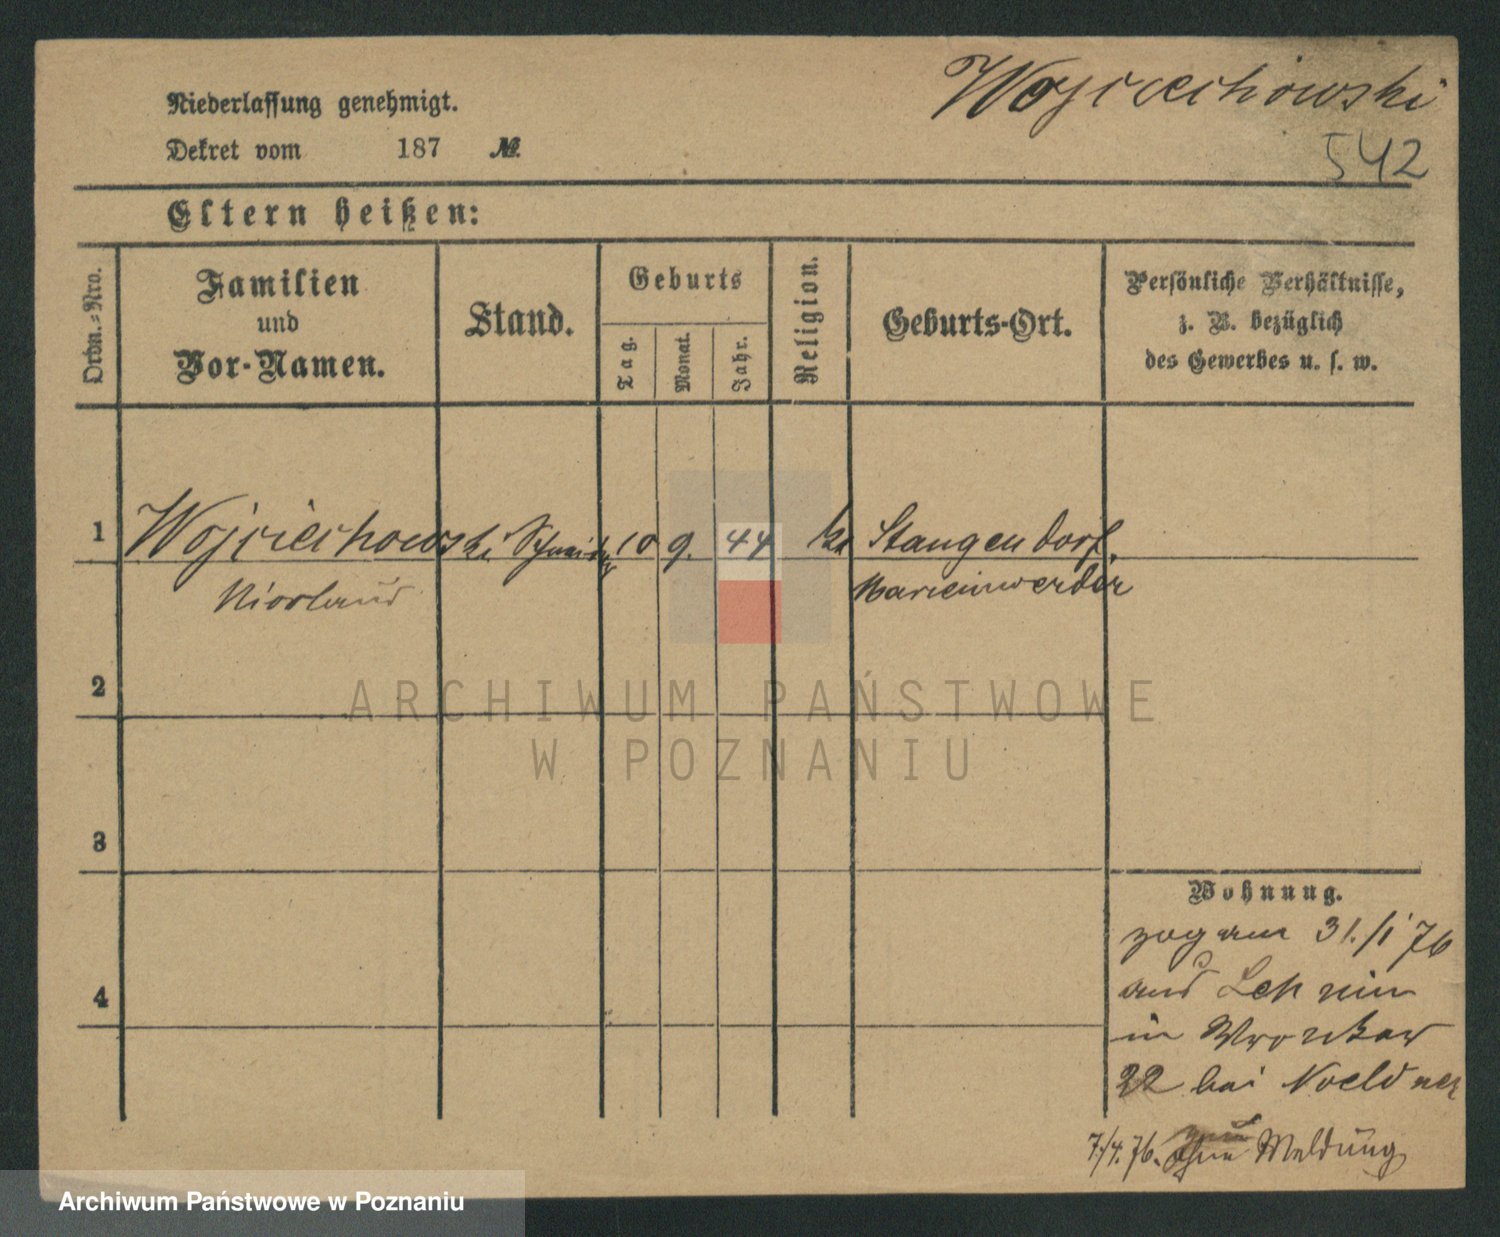 Wojciechowski
542
Niederlassung genehmigt.
Dekret vom 187 №.
Eltern heißen:
Ordn.-Nro.
Familien
und
Vor-Namen.
Stand.
Geburts
Tag.
Monat.
Jahr.
Religion.
Geburts-Ort.
Persönliche Verhältnisse,
z. B. bezüglich
des Gewerbes u. s. w.
1 Wojciechowski Schneider 10 9. 44 k. Stangendorf.
Nicolaus Marienwerder
2
ARCHIWUM PAŃSTWOWE
W POZNANIU
3
Wohnung.
zog am 31./1 76
aus
4
in Wronker
22 bei Noeldner
7/4. 76. ohne Meldung
Archiwum Państwowe w Poznaniu